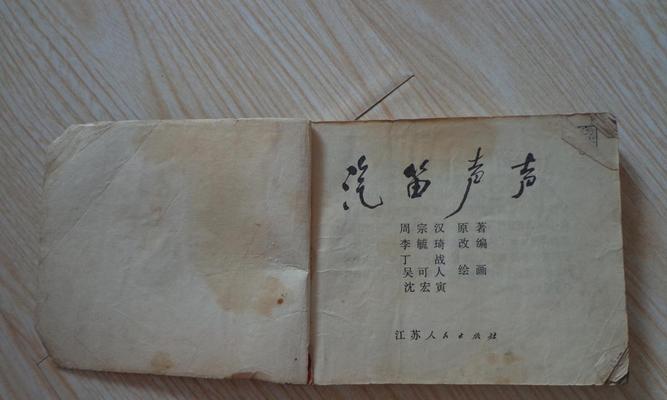 汽笛声声
周宗汉 原著
李毓琦 改编
丁战
吴可人 绘画
沈宏寅
江苏人民出版社